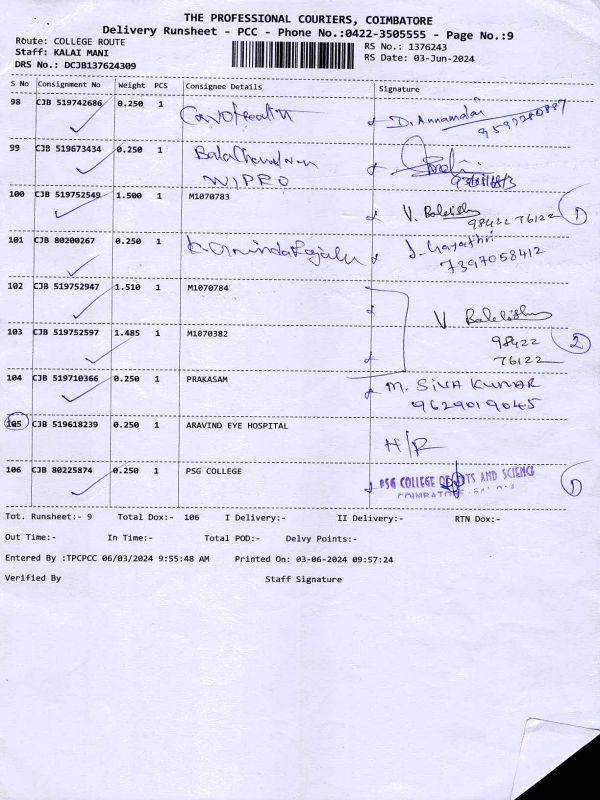 THE PROFESSIONAL COURIERS, COIMBATORE
Delivery Runsheet - PCC - Phone No.:0422-3505555 - Page No.:9
Route: COLLEGE ROUTE
RS No.: 1376243
Staff: KALAI MANI
RS Date: 03-Jun-2024
DRS No.: DCJB137624309
S No Consignment No Weight PCS Consignee Details Signature
98 CJB 519742686 0.250 1 D. Annamalai
99 CJB 519673434 0.250 1 Bala Chandran
WIPRO
100 CJB 519752549 1.500 1 M1070783 V. Balakishny
98422 76122 1
101 CJB 80200267 0.250 1 J. Gayathri
7397058412
102 CJB 519752947 1.510 1 M1070784
V Balakishny
103 CJB 519752597 1.485 1 M1070382 98422 2
76122
104 CJB 519710366 0.250 1 PRAKASAM M. SIVA KUMAR
9629019045
105 CJB 519618239 0.250 1 ARAVIND EYE HOSPITAL
H/R
106 CJB 80225874 0.250 1 PSG COLLEGE PSG COLLEGE OF ARTS AND SCIENCE 1
Tot. Runsheet:- 9 Total Dox:- 106 I Delivery:- II Delivery:- RTN Dox:-
Out Time:- In Time:- Total POD:- Delvy Points:-
Entered By :TPCPCC 06/03/2024 9:55:48 AM Printed On: 03-06-2024 09:57:24
Verified By Staff Signature